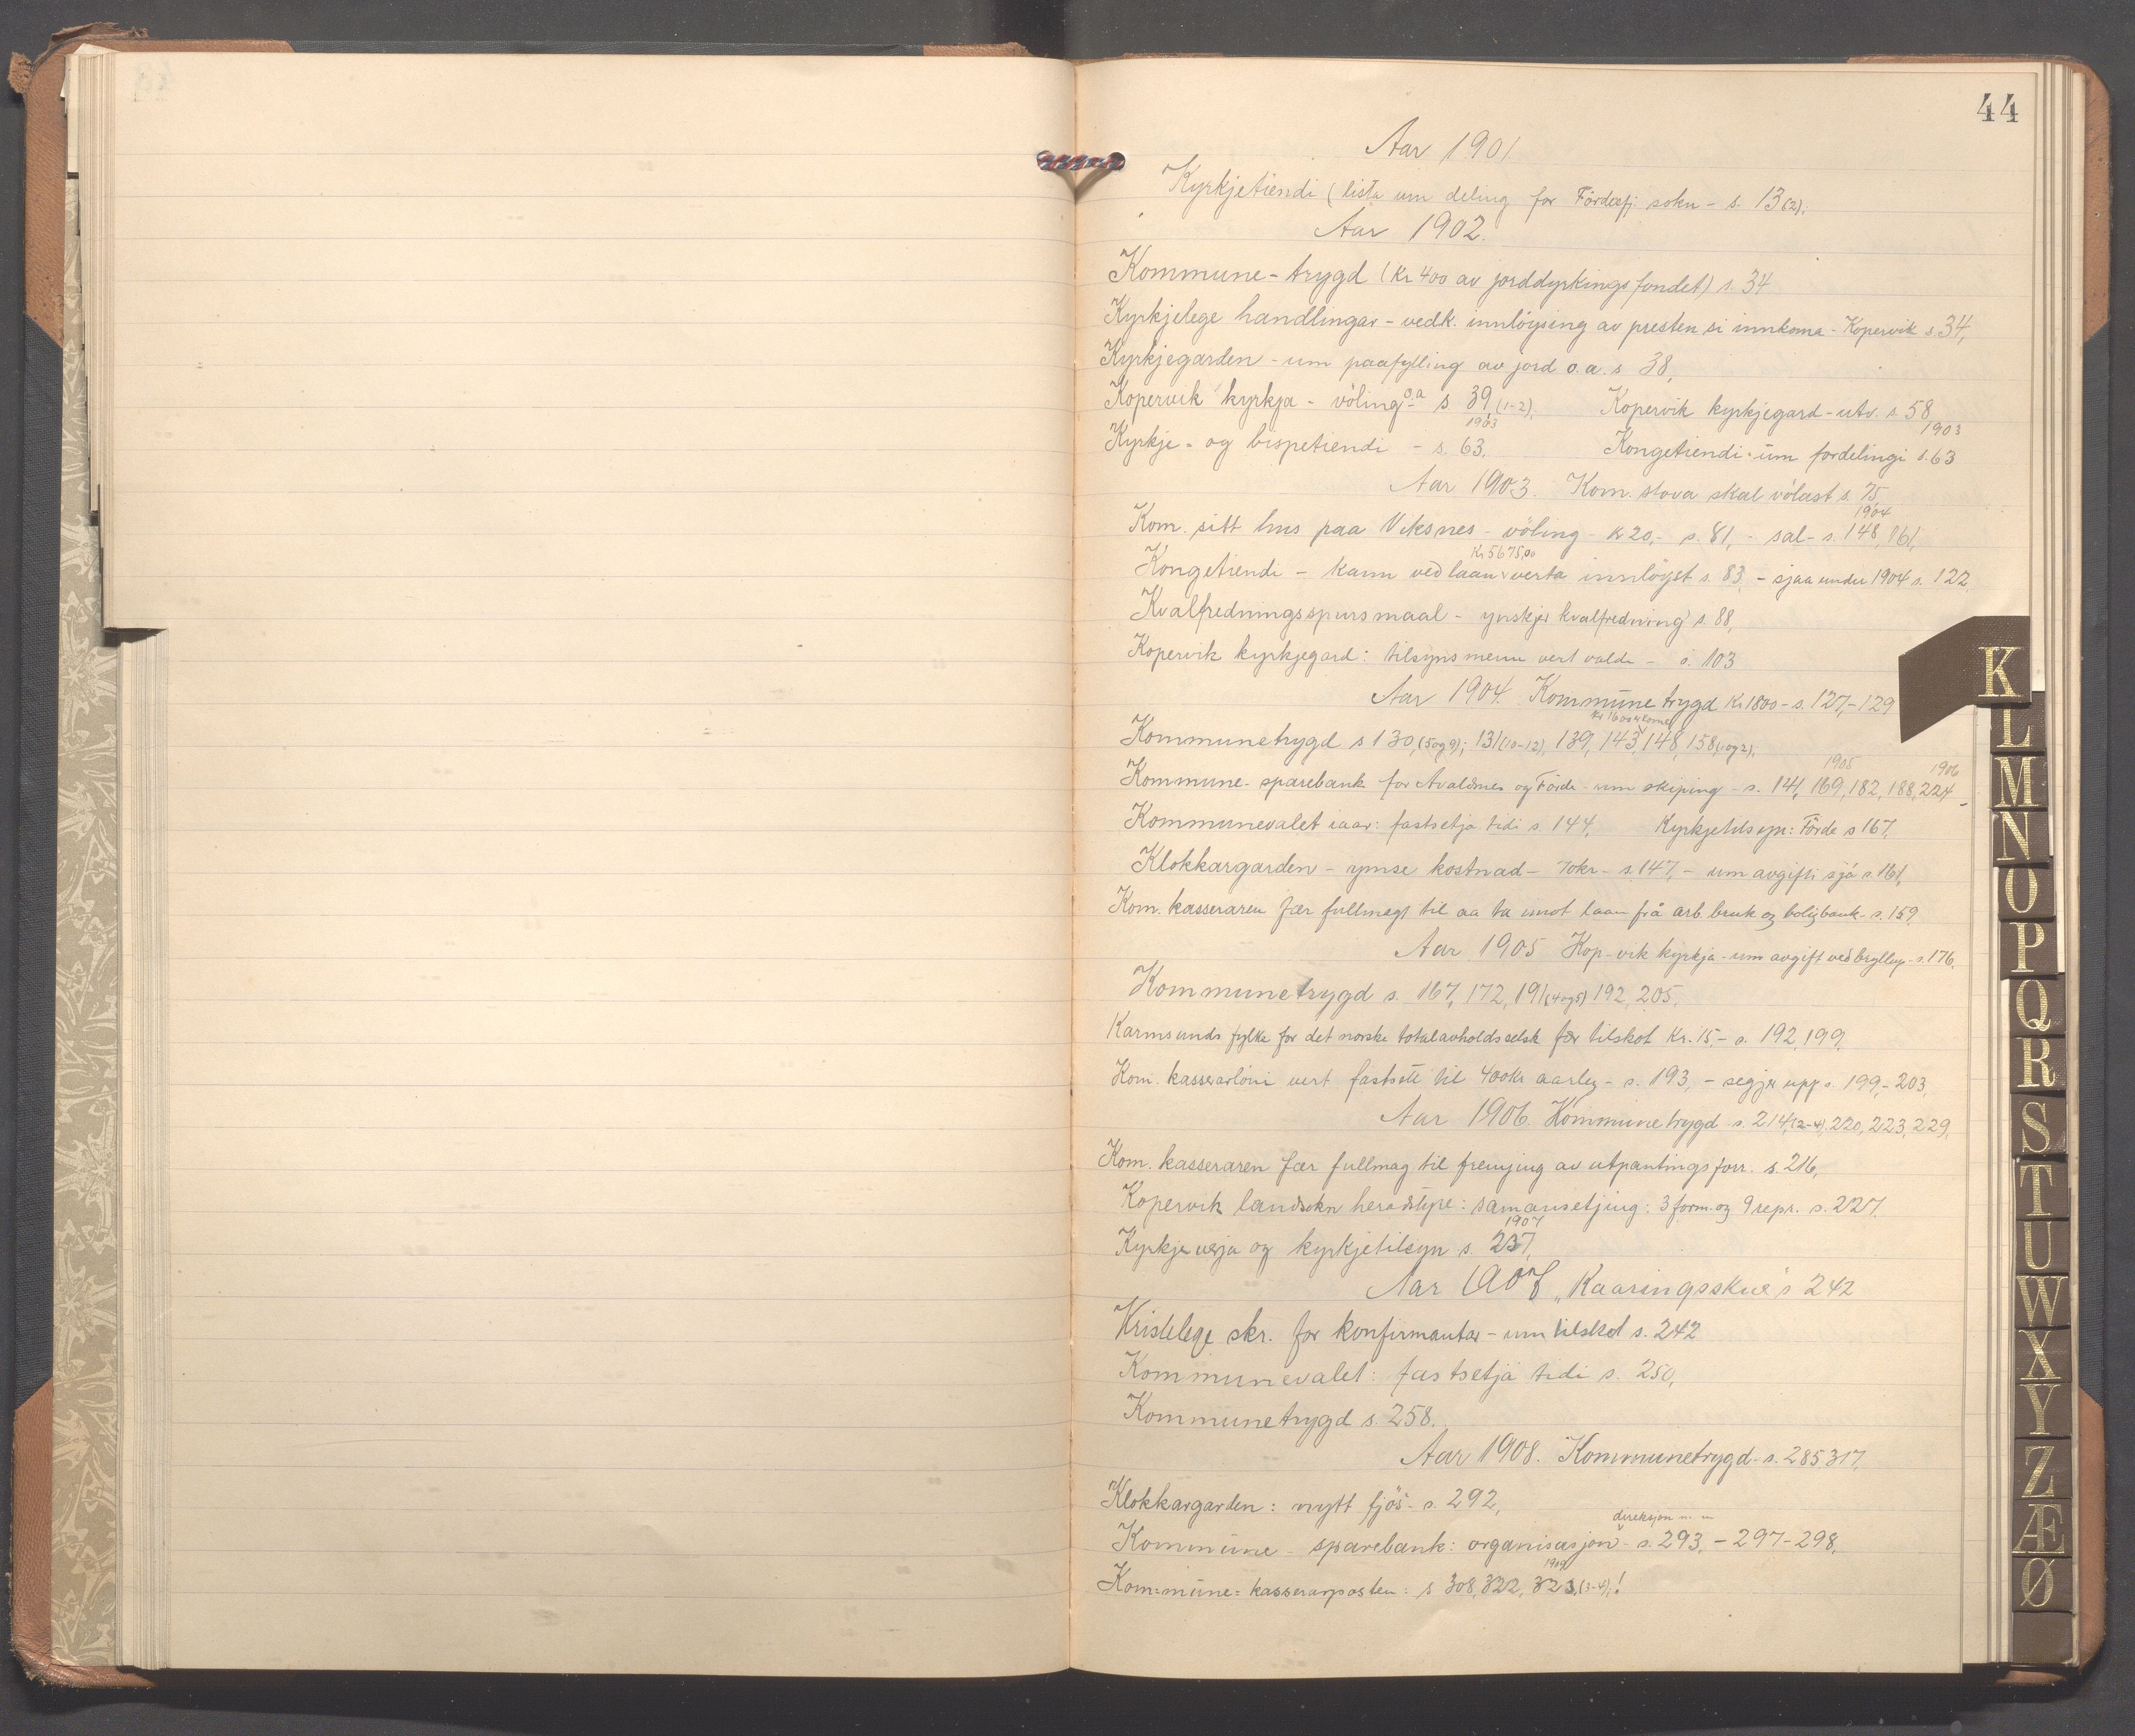 44
Aar 1901
Kyrkjetiendi (lista um deling for Fördesfj. sokn - s. 13(2).
Aar 1902.
Kommune-trygd (Kr 400 av jorddyrkingsfondet) s. 34
Kyrkjelege handlingar - vedk. innlöysing av presten si innkoma - Kopervik s. 34,
Kyrkjegarden - um paafylling av jord o.a. s 38,
Kopervik kyrkja - völing o.a s 39,(1-2). Kopervik kyrkjegard - utv. s. 58
1903 1903
Kyrkje- og bispetiendi - s. 63. Kongetiendi - um fordelingi s. 63
Aar 1903. Kom. stova skal völast s. 75,
1904
Kom. sitt hus paa Viksnes - völing - kr 20,- s. 81, - sal - s. 148, 161,
Kr 5675,00
Kongetiendi - kann ved laan verta innlöyst s. 83, - sjaa under 1904 s. 122
Kvalfredningsspursmaal - ynskjer kvalfredning s. 88,
Kopervik kyrkjegard: tilsynsmenn vert valde - s. 103
Aar 1904. Kommunetrygd Kr 1800 - s. 127,-129
Kr 1600
Kommunetrygd s 130,(5og9); 131(10-12), 139, 143, 148, 158(1og2).
1905 1906
Kommune-sparebank for Avaldnes og Förde - um skiping - s. 141, 169, 182, 188, 224
Kommunevalet iaar: fastsetja tidi s. 144, Kyrkjetilsyn: Förde s 167,
Klokkargarden - ymse kostnad - 70kr - s. 147, - um avgifti sjå s. 161,
Kom. kasseraren fær fullmagt til aa ta imot laan frå arb. bruk og boligbank - s. 159
Aar 1905 Kop-vik kyrkja - um avgift ved bryllup - s. 176,
Kommunetrygd s. 167, 172, 191(4og5) 192, 205,
Karmsunds fylke for det norske totalavholdsselsk fær tilskot Kr. 15,- s. 192, 199,
Kom. kasserarlöni vert fastsett til 400kr aarleg - s. 193, - segjer upp s. 199,- 203,
Aar 1906. Kommunetrygd s. 214,(2-4), 220, 223, 229,
Kom. kasseraren fær fullmag til fremjing av utpantingsforr. s. 216,
Kopervik landsokn heradstyre: samansetjing: 3 form. og 9 repr. s. 227,
1907
Kyrkjeverja og kyrkjetilsyn s. 237,
Aar 1907 „Kaaringsskue" s 242
Kristelege skr. for konfirmantar - um tilskot s. 242
Kommunevalet: fastsetja tidi s. 250,
Kommunetrygd s. 258.
Aar 1908. Kommunetrygd - s. 285, 317,
Klokkargarden: nytt fjös - s. 292,
direksjon m. m
Kommune-sparebank: organisasjon - s. 293, - 297-298,
1909
Kom=mune=kasserarposten: s 308, 322, 323,(3-4),!
K
L
M
N
O
P
Q
R
S
T
U
W
X
Y
Z
Æ
Ø